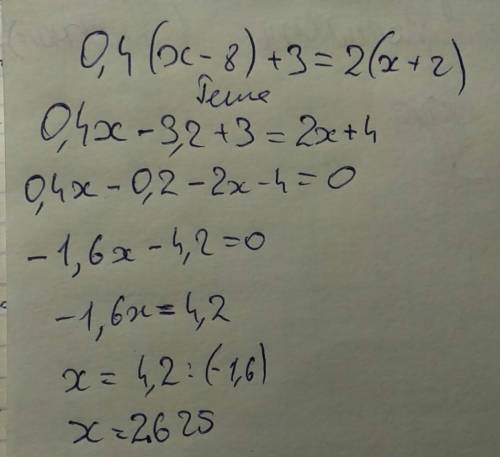 0,4(x-8)+3=2(x+2)
0,4x-3,2+3=2x+4
0,4x-0,2-2x-4=0
-1,6x-4,2=0
-1,6x=4,2
x=4,2:(-1,6)
x=2.625